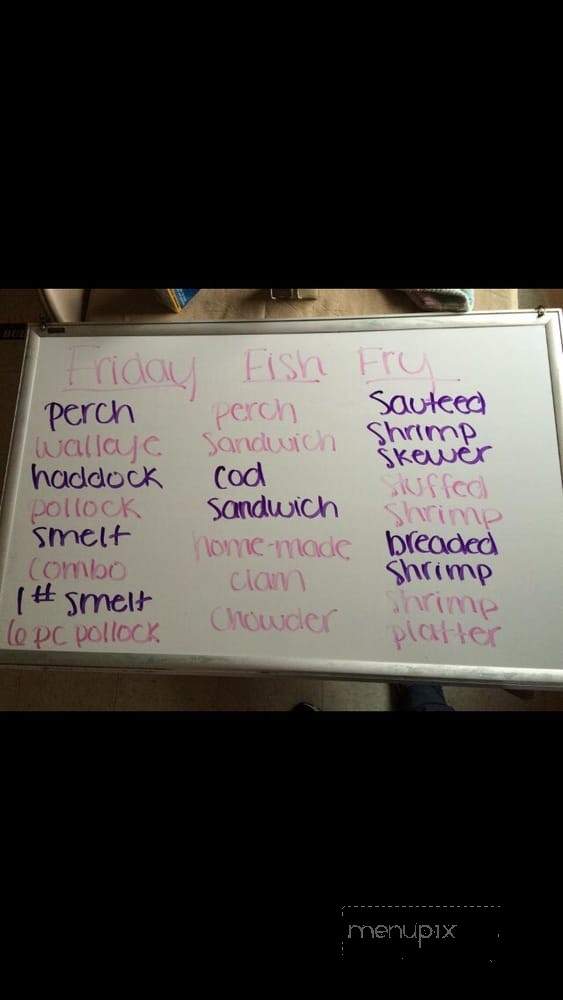 Friday Fish Fry
perch
walleye
haddock
pollock
smelt
combo
1# smelt
6 pc pollock
perch
sandwich
cod
sandwich
home-made
clam
chowder
Sauteed
shrimp
skewer
stuffed
shrimp
breaded
shrimp
shrimp
platter
menupix